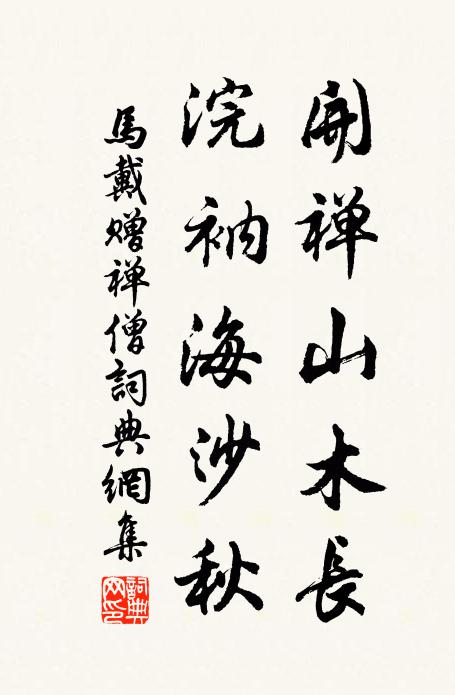 開禅山木長
浣衲海沙秋
馬戴贈禅僧詞典網集
詞典网印